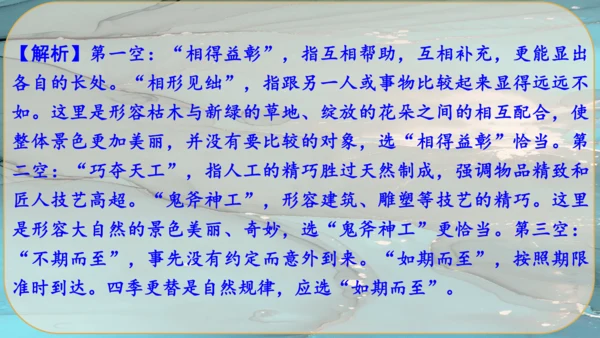 【解析】第一空：“相得益彰”，指互相帮助，互相补充，更能显出
各自的长处。“相形见绌”，指跟另一人或事物比较起来显得远远不
如。这里是形容枯木与新绿的草地、绽放的花朵之间的相互配合，使
整体景色更加美丽，并没有要比较的对象，选“相得益彰”恰当。第
二空：“巧夺天工”，指人工的精巧胜过天然制成，强调物品精致和
匠人技艺高超。“鬼斧神工”，形容建筑、雕塑等技艺的精巧。这里
是形容大自然的景色美丽、奇妙，选“鬼斧神工”更恰当。第三空：
“不期而至”，事先没有约定而意外到来。“如期而至”，按照期限
准时到达。四季更替是自然规律，应选“如期而至”。